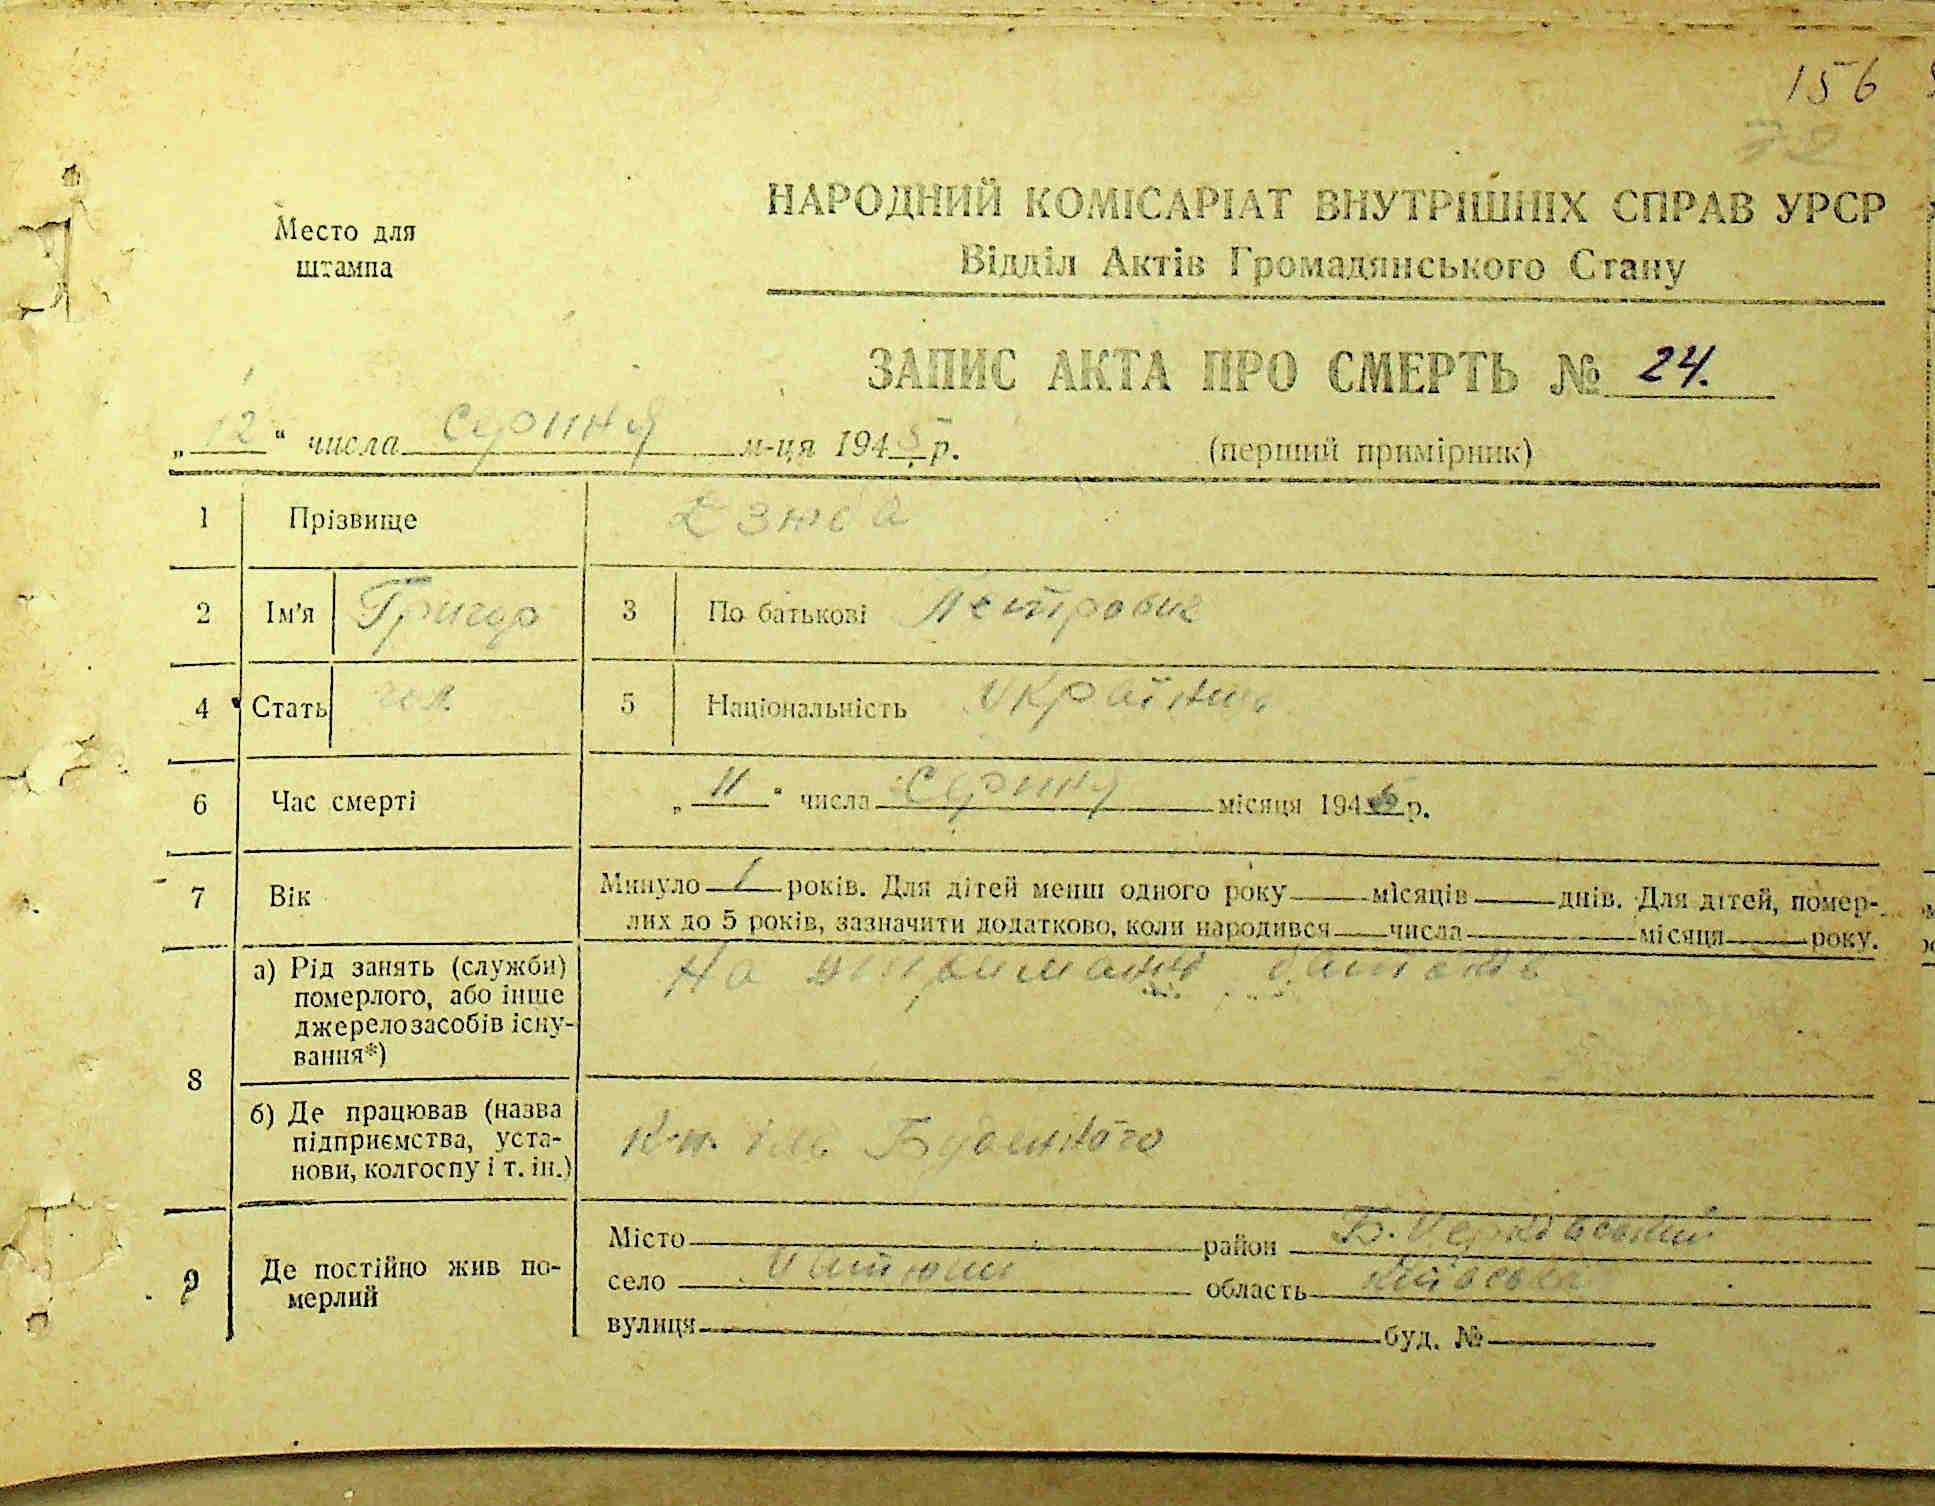 156
72
Место для
штампа
НАРОДНИЙ КОМІСАРІАТ ВНУТРІШНІХ СПРАВ УРСР
Відділ Актів Громадянського Стану
ЗАПИС АКТА ПРО СМЕРТЬ № 24.
„ 12 “ числа Серпня м-ця 1945 р. (перший примірник)
1 Прізвище Дзюба
2 Ім'я Григор 3 По батькові Петрович
4 Стать чол. 5 Національність Українець
6 Час смерті „ 11 “ числа Серпня місяця 1945 р.
7 Вік Минуло 1 років. Для дітей менш одного року місяців днів. Для дітей, помер-
лих до 5 років, зазначити додатково, коли народився числа місяця року.
8 а) Рід занять (служби) На утриманні батьків
померлого, або інше
джерело засобів існу-
вання*)
б) Де працював (назва
підприємства, уста- К-п. ім. Будьонного
нови, колгоспу і т. ін.)
9 Де постійно жив по-
мерлий
Місто район Б. Церківський
село область Київська
вулиця буд. №